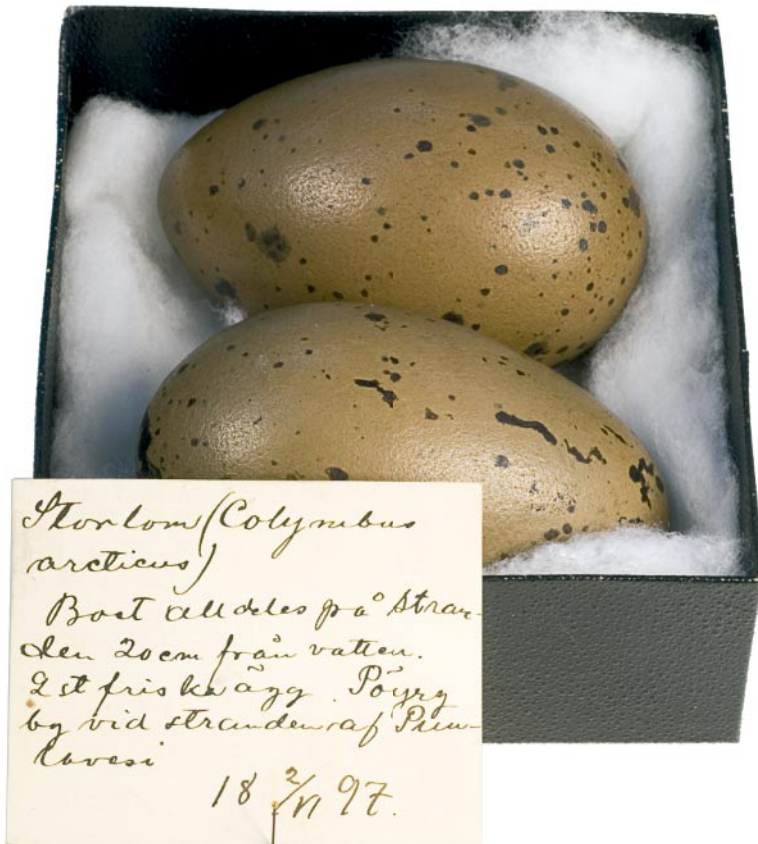 Storlom (Colymbus
arcticus)
Boet alldeles på stran-
den 20cm från vatten.
2 st friska ägg. Pöyry
by vid stranden af
18 2/VI 97.